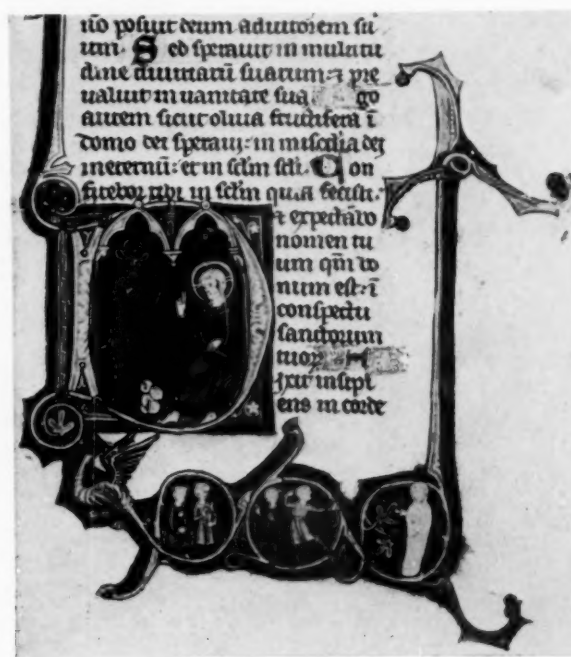 nō posuit deum adiutorem su
um. Sed sperauit in multitu
dine diuitiarū suarum: ⁊ pre
ualuit in uanitate sua go
autem sicut oliua fructifera ī
domo dei speraui: in mis̄cdia dei
in eternū: et in sc̄lm sc̄li. Con
fitebor tibi in sc̄lm quia fecisti:
⁊ expectabo
nomen tu
um qm̄ bo
num est: ī
conspectu
sanctorum
tuoꝝ
ixit insipi
ens in corde